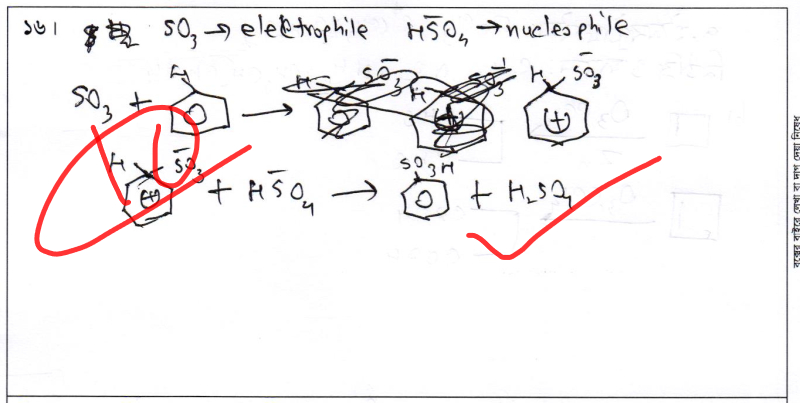 ১৬। SO₃ → electrophile HS̄O₄ → nucleophile
SO₃ + H → H S̄O₃ (+)
H S̄O₃ (+) + HS̄O₄ → SO₃H + H₂SO₄
বক্সের বাইরে লেখা বা দাগ দেয়া নিষেধ